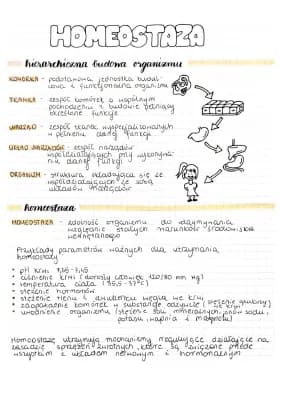 HOMEOSTAZA
hierarchiczna budowa organizmu
KOMÓRKA - podstawowa jednostka budul-
cowa i funkcjonalna organizmu
TKANKA - zespół komórek o wspólnym
pochodzeniu i budowie pełniący
określone funkcje
NARZĄD - zespół tkanek wyspecjalizowanych
w pełnieniu danej funkcji
UKŁAD NARZĄDÓW - zespół narządów
współdziałających przy wykonywa-
niu danej funkcji
ORGANIZM - struktura składająca się ze
współdziałających ze sobą
układów narządów
homeostaza
HOMEOSTAZA - zdolność organizmu do utrzymania
względnie stałych warunków środowiska
wewnętrznego
Przykłady parametrów ważnych dla utrzymania
homeostazy
• pH krwi 7,35-7,45
• ciśnienie krwi (dorosły człowiek 120/80 mm Hg)
• temperatura ciała (36,5-37°C)
• stężenie hormonów
• stężenie tlenu i dwutlenku węgla we krwi
• zaopatrzenie komórek w substancje odżywcze (stężenie glukozy
we krwi)
• uwodnienie organizmu (stężenie soli mineralnych, jonów sodu,
potasu, wapnia i
Homeostazę utrzymują mechanizmy regulujące działające na
zasadzie sprzężeń zwrotnych, które są zależne przede
wszystkim z układem nerwowym i hormonalnym